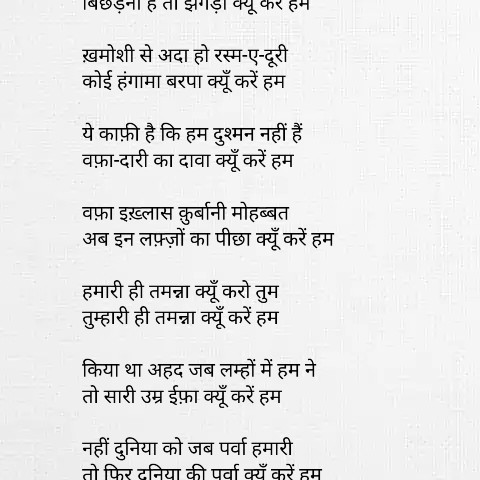 बिछड़ना है तो झगड़ा क्यूँ करें हम
ख़मोशी से अदा हो रस्म-ए-दूरी
कोई हंगामा बरपा क्यूँ करें हम
ये काफ़ी है कि हम दुश्मन नहीं हैं
वफ़ा-दारी का दावा क्यूँ करें हम
वफ़ा इख़्लास क़ुर्बानी मोहब्बत
अब इन लफ़्ज़ों का पीछा क्यूँ करें हम
हमारी ही तमन्ना क्यूँ करो तुम
तुम्हारी ही तमन्ना क्यूँ करें हम
किया था अहद जब लम्हों में हम ने
तो सारी उम्र ईफ़ा क्यूँ करें हम
नहीं दुनिया को जब पर्वा हमारी
तो फिर दुनिया की पर्वा क्यूँ करें हम